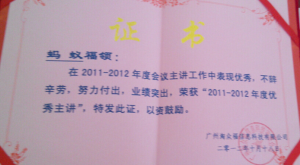 证 书
蚂蚁福领：
在2011-2012年度会议主讲工作中表现优秀，不辞
辛劳，努力付出，业绩突出，荣获“2011-2012年度优
秀主讲”，特发此证，以资鼓励。
二〇一二年十月十八日